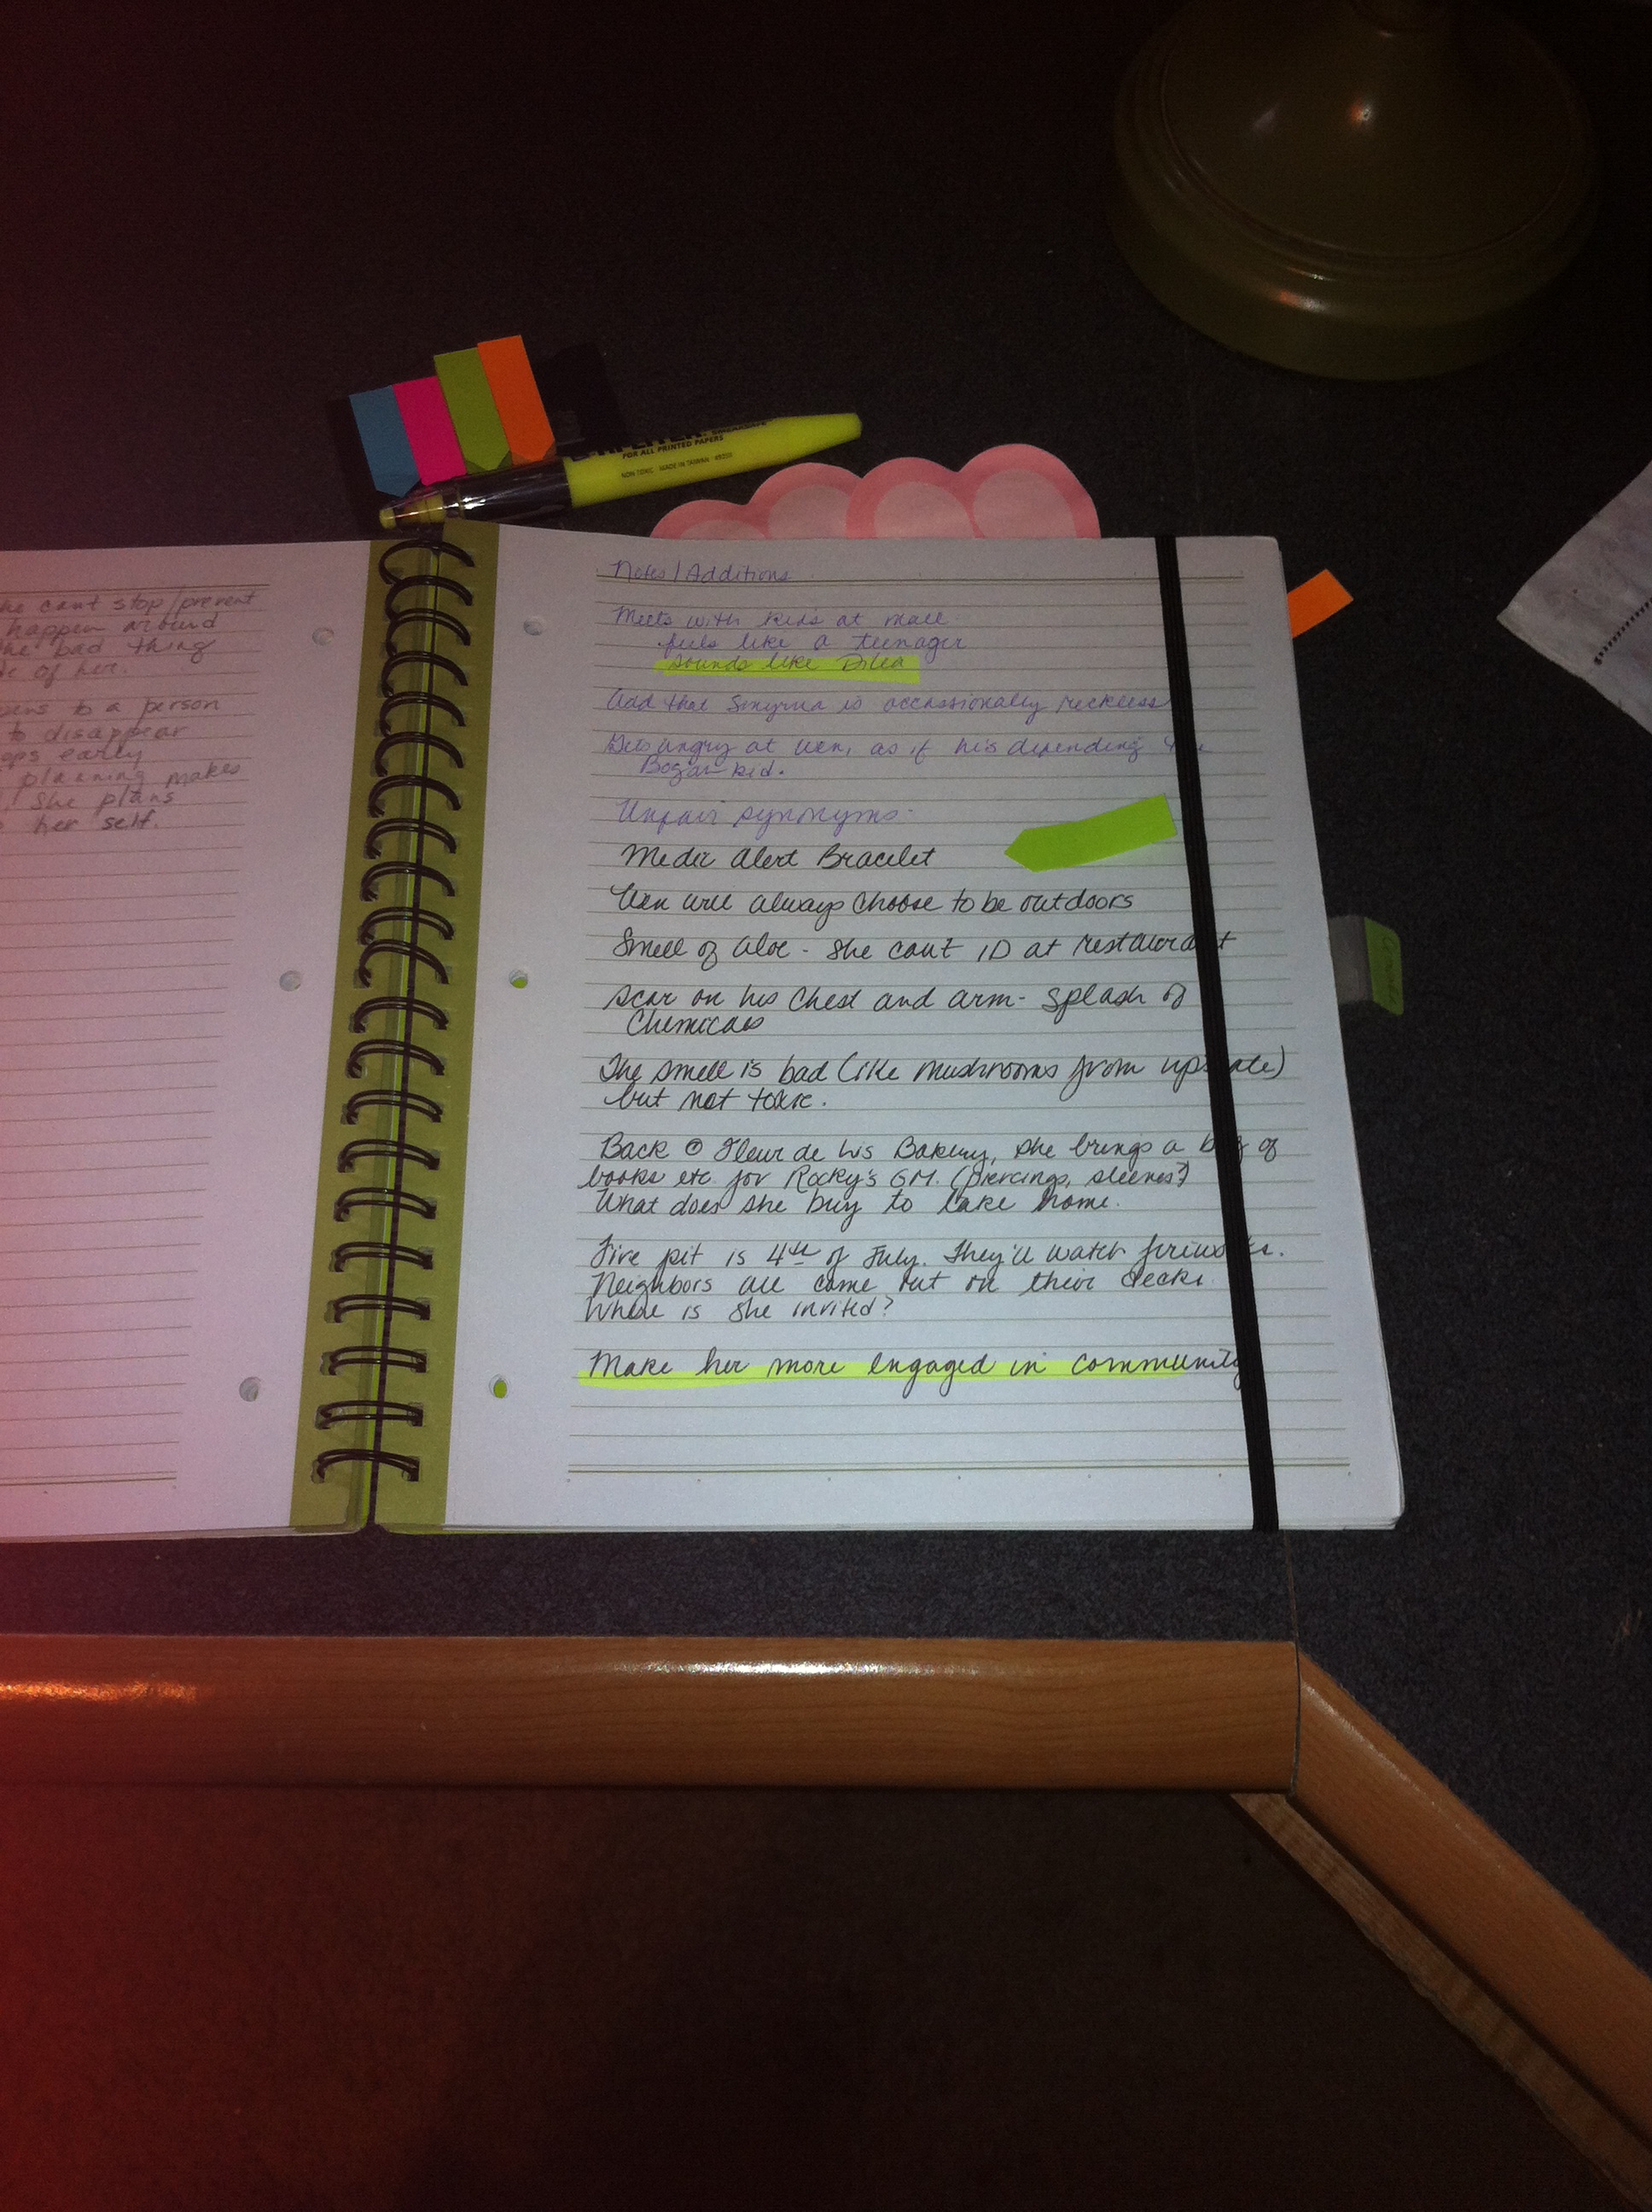 he cant stop/prevent
happen around
the bad thing
of her.
to a person
to disappear
early
planning makes
she plans
her self.
FOR ALL PRINTED PAPERS
NON TOXIC MADE IN TAIWAN
Notes/Additions
Meets with kids at mall
feels like a teenager
sounds like
Add that Smyrna is occassionally reckless
Gets angry at Wen, as if he's depending
kid.
Unfair synonyms-
Medic Alert Bracelet
Wen will always choose to be outdoors
Smell of aloe - she can't ID at restaurant
Scar on his chest and arm - splash of
Chemicals
The smell is bad (like mushrooms from upstate)
but not toxic.
Back @ Fleur de lis Bakery, she brings a bag of
books etc. for Rocky's GM. (piercings, sleeves?)
What does she buy to take home.
Fire pit is 4th of July. They'll watch fireworks.
Neighbors all come out on their decks
Where is she invited?
Make her more engaged in community